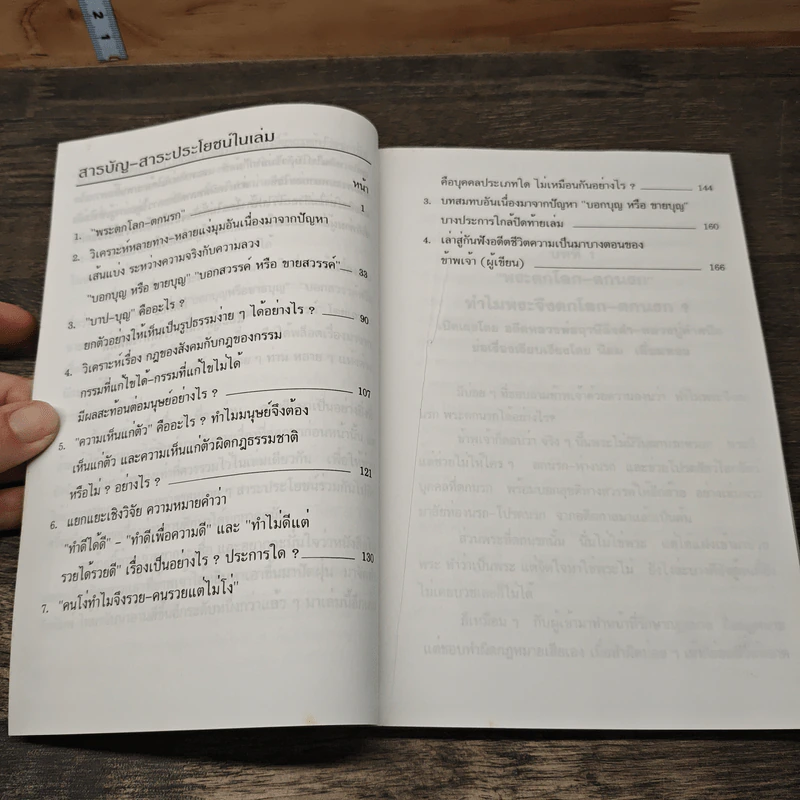 2
1
สารบัญ-สาระประโยชน์ในเล่ม
หน้า
1. "พระตกโลก-ตกนรก" 1
2. วิเคราะห์หลายทาง-หลายแง่มุมอันเนื่องมาจากปัญหา
เส้นแบ่ง ระหว่างความจริงกับความลวง
"บอกบุญ หรือ ขายบุญ" "บอกสวรรค์ หรือ ขายสวรรค์" 33
3. "บาป-บุญ" คืออะไร ?
ยกตัวอย่างให้เห็นเป็นรูปธรรมง่าย ๆ ได้อย่างไร ? 90
4. วิเคราะห์เรื่อง กฎของสังคมกับกฎของกรรม
กรรมที่แก้ไขได้-กรรมที่แก้ไขไม่ได้
มีผลสะท้อนต่อมนุษย์อย่างไร ? 107
5. "ความเห็นแก่ตัว" คืออะไร ? ทำไมมนุษย์จึงต้อง
เห็นแก่ตัว และความเห็นแก่ตัวผิดกฎธรรมชาติ
หรือไม่ ? อย่างไร ? 121
6. แยกแยะเชิงวิจัย ความหมายคำว่า
"ทำดีได้ดี" - "ทำดีเพื่อความดี" และ "ทำไม่ดีแต่
รวยได้รวยดี" เรื่องเป็นอย่างไร ? ประการใด ? 130
7. "คนโง่ทำไมจึงรวย-คนรวยแต่ไม่โง่"
คือบุคคลประเภทใด ไม่เหมือนกันอย่างไร ? 144
3. บทสมทบอันเนื่องมาจากปัญหา "บอกบุญ หรือ ขายบุญ"
บางประการใกล้ปิดท้ายเล่ม 160
4. เล่าสู่กันฟังอดีตชีวิตความเป็นมาบางตอนของ
ข้าพเจ้า (ผู้เขียน) 166